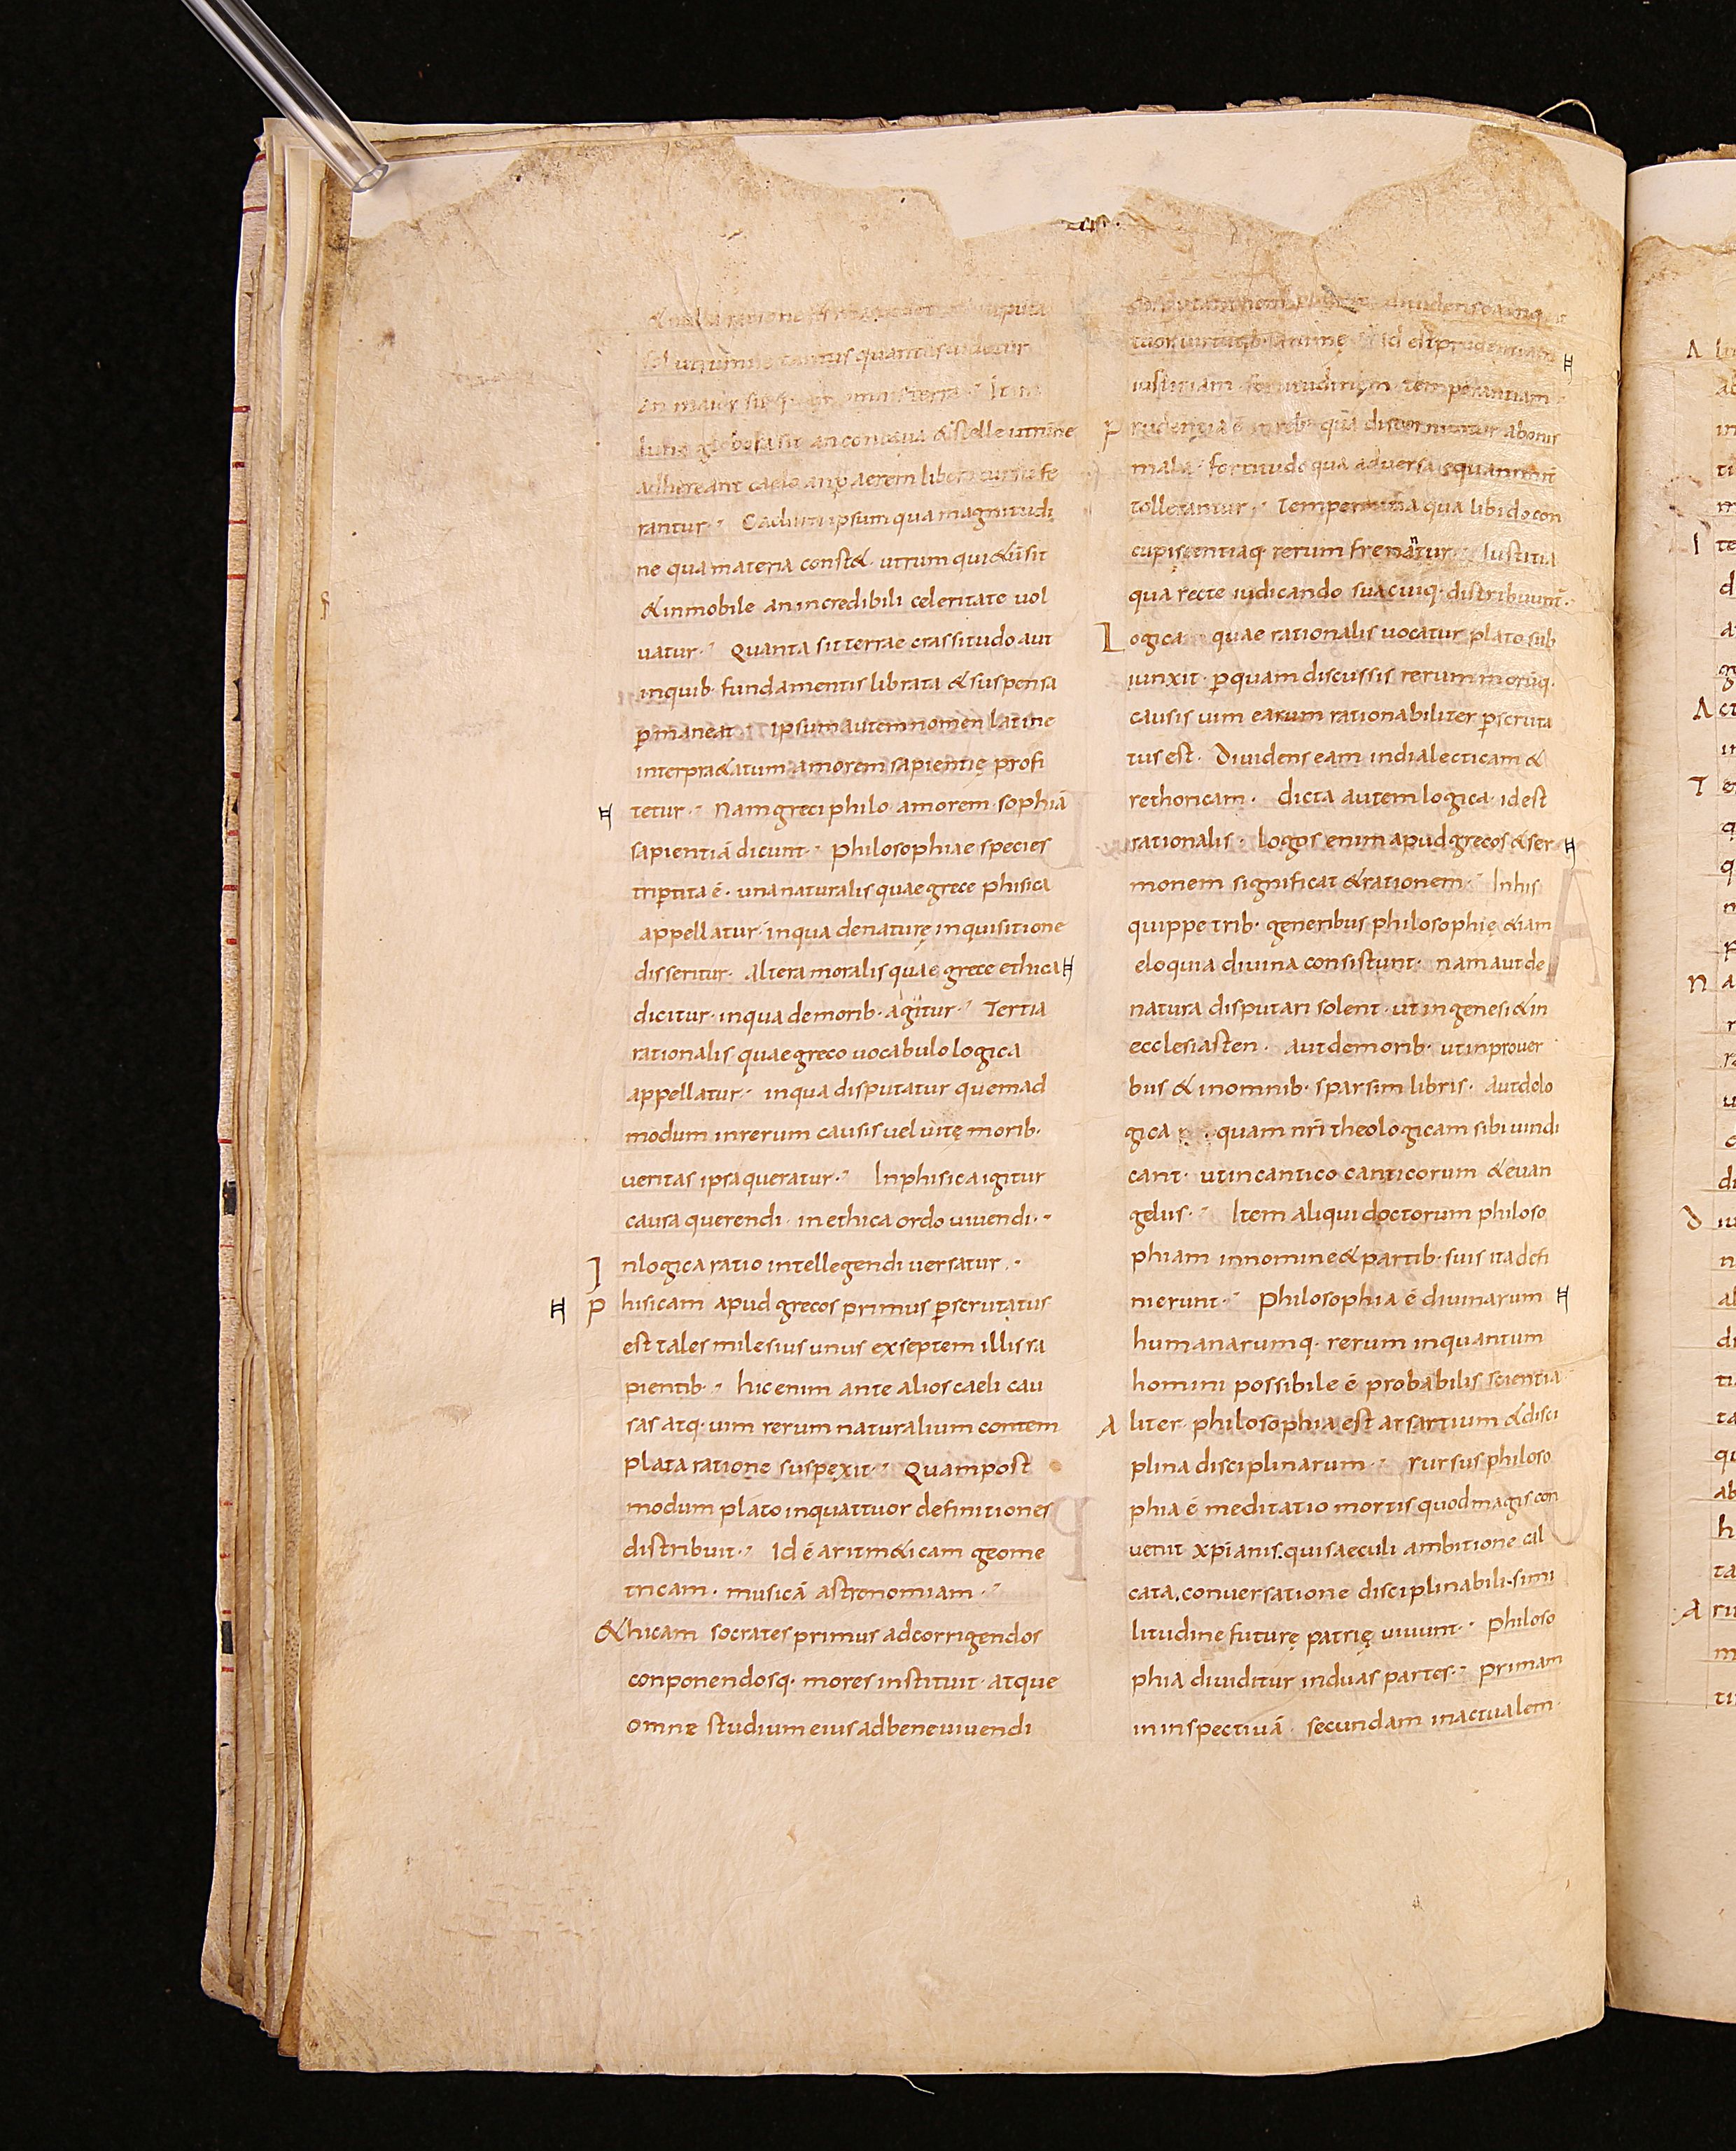 sol utrumne tantus quantus uidetur
an maior sit quam omnis terra · Item
luna globosa sit an concaua & stelle utrũne
adhereant caelo an ꝑ aerem libero cursu fe
rantur · Caelum ipsum qua magnitudi
ne qua materia const& · utrum qui&ũ sit
& inmobile an incredibili celeritate uol
uatur · Quanta sit terrae crassitudo aut
in quib· fundamentis librata & suspensa
ꝑmaneat · Ipsum autem nomen latine
interpra&atum amorem sapientię profi
tetur · Nam greci philo amorem · sophiã
sapientiã dicunt · Philosophiae species
triꝑtita ẽ · una naturalis quae grece phisica
appellatur · in qua de naturę inquisitione
disseritur · altera moralis quae grece ethica
dicitur · in qua de morib· agitur · Tertia
rationalis quae greco uocabulo logica
appellatur · in qua disputatur quemad
modum in rerum causis uel uitę morib·
ueritas ipsa queratur · In phisica igitur
causa querendi · in ethica ordo uiuendi ·
In logica ratio intellegendi uersatur ·
Phisicam apud grecos primus ꝑscrutatus
est tales milesius unus ex septem illis sa
pientib· hic enim ante alios caeli cau
sas atq· uim rerum naturalium contem
plata ratione suspexit · Quam post
modum plato in quattuor definitiones
distribuit · Id ẽ aritm&icam geome
tricam · musicã astronomiam ·
&hicam socrates primus ad corrigendos
conponendosq· mores instituit · atque
omne studium eius ad bene uiuendi
disputationem diuidens eam in quat
tuor uirtutib· animę · id est prudentiam
iustitiam · fortitudinem · temperantiam ·
Prudentia ẽ in reb· qũa discernuntur a bonis
mala · fortitudo qua aduersa equanimit
tollerantur · Temperantia qua libido con
cupiscentiaq· rerum frenatur · Iustitia
qua recte iudicando sua cuiq· distribuunt̃ ·
Logica quae rationalis uocatur plato sub
iunxit · ꝑ quam discussis rerum morũq·
causis uim earum rationabiliter ꝑscruta
tus est · Diuidens eam in dialecticam &
rethoricam · dicta autem logica · id est
rationalis · Logos enim apud grecos & ser
monem significat & rationem · In his
quippe trib· generibus philosophię &iam
eloquia diuina consistunt · nam aut de
natura disputari solent · ut in genesi & in
ecclesiasten · aut de morib· ut in prouer
bus & in omnib· sparsim libris · aut de lo
gica quam nr̃i theologicam sibi uindi
cant · ut in cantico canticorum & euan
geliis · Item aliqui doctorum philoso
phiam in nomine & partib· suis ita defi
nierunt · Philosophia ẽ diuinarum
humanarumq· rerum in quantum
homini possibile ẽ probabilis scientia
Aliter philosophia est ars artium & disci
plina disciplinarum · rursus philoso
phia ẽ meditatio mortis quod magis con
uenit xp̃ianis · qui saeculi ambitione cal
cata · conuersatione disciplinabili · simi
litudine futurę patrię uiuunt · Philoso
phia diuiditur in duas partes · Primam
in inspectiuã · secundam in actualem